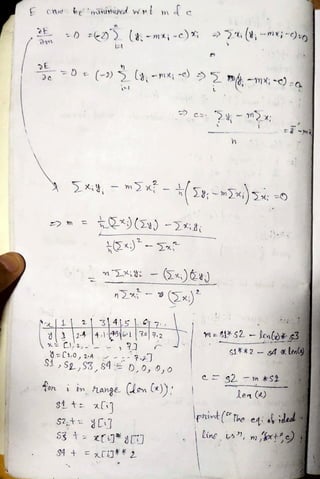 E can be minimized w.r.t m & c
∂E/∂m = 0 = (-2) Σ_{i=1}^{n} (y_i - mx_i - c) x_i ⇒ Σ x_i (y_i - mx_i - c) = 0
∂E/∂c = 0 = (-2) Σ_{i=1}^{n} (y_i - mx_i - c) ⇒ Σ (y_i - mx_i - c) = 0
⇒ c = (Σ y_i - m Σ x_i) / n = ȳ - m
Σ x_i y_i - m Σ x_i² - 1/n (Σ y_i - m Σ x_i) Σ x_i = 0
⇒ m = (1/n (Σ x_i)(Σ y_i) - Σ x_i y_i) / (1/n (Σ x_i)² - Σ x_i²)
= (n Σ x_i y_i - (Σ x_i)(Σ y_i)) / (n Σ x_i² - (Σ x_i)²)
x | 1 | 2 | 3 | 4 | 5 | 6 | 7
y 2.4
x = [1, 2, - - , 7]
y = [2.0, 2.4 - - -
S1, S2, S3, S4 = 0, 0, 0, 0
for i in range (len (x)):
S1 += x[i]
S2 += y[i]
S3 += x[i] * y[i]
S4 += x[i] ** 2
m = S1 * S2 - len(x) * S3
S1 ** 2 - S4 * len(x)
c = S2 - m * S1
len (x)
print("The eq. of ideal
line is", m, "x+", c)